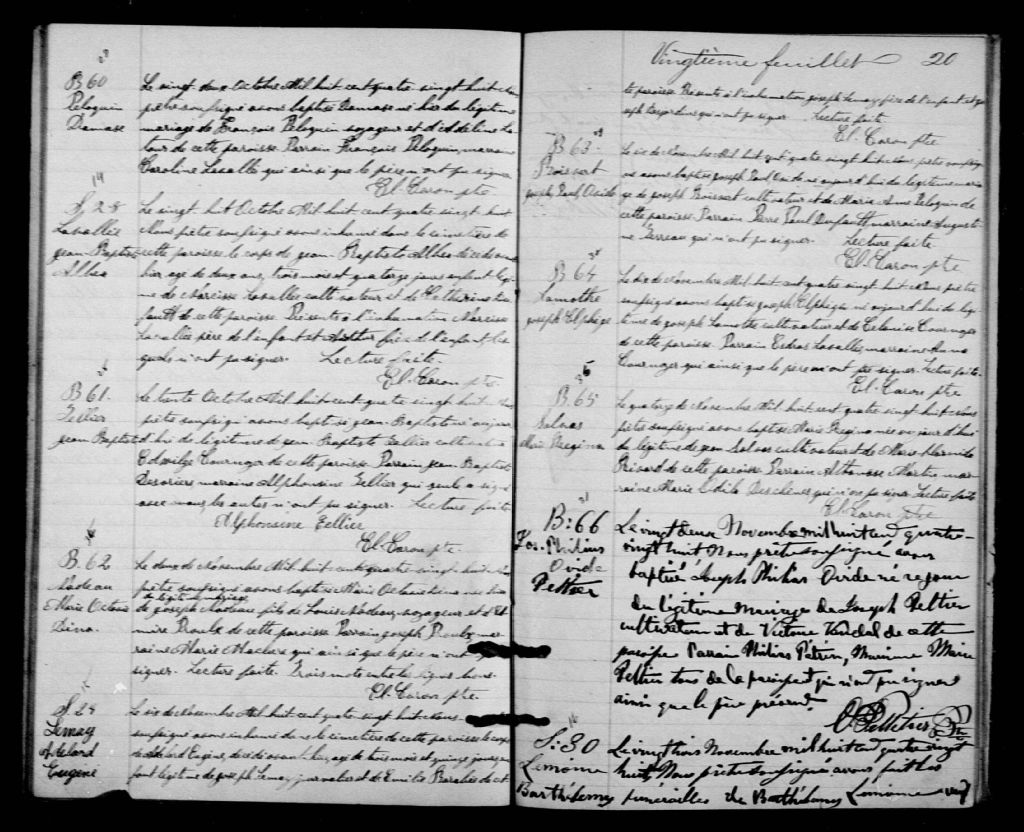 B 60
Peloquin
Damase
Le vingt deux Octobre Mil huit cent quatre vingt huit
prêtre soussigné avons baptisé Damase né hier du légitime
mariage de François Peloquin voyageur et d'Adeline La
tour de cette paroisse. Parrain François Peloquin, marraine
Caroline Lavallé qui ainsi que le père n'ont pu signer
El. Caron ptre
S. 28
Lavallée
Jean Baptiste
Albea
Le vingt huit Octobre Mil huit cent quatre vingt huit
Nous prêtre soussigné avons inhumé dans le cimetière de
cette paroisse le corps de Jean Baptiste décédé avant
hier agé de deux ans, trois mois et quatorze jours enfant légi
me de Narcisse Lavallée cultivateur et de Catherine
de cette paroisse. Présents à l'inhumation Narcisse
Lavallée père de l'enfant et Arthur frère de l'enfant les
quels n'ont pu signer. Lecture faite.
El. Caron ptre.
B 61.
Tellier
Jean Baptiste
Le trente Octobre Mil huit cent quatre vingt huit
prêtre soussigné avons baptisé Jean Baptiste né aujour
d'hui du légitime de Jean Baptiste Tellier cultivateur
Edwilge Cournoyer de cette paroisse. Parrain Jean Baptiste
Desorciers marraine Alphonsine Tellier qui seule a signé
avec nous, les autres n'ont pu signer. Lecture faite
Alphonsine Tellier
El. Caron ptre.
B. 62
Nadeau
Marie Octavie
Dina.
Le deux de Novembre Mil huit cent quatre vingt huit
prêtre soussigné avons baptisé Marie Octavie Dina née hier
du légitime mariage
de Joseph Nadeau fils de Louis Nadeau, voyageur et d'El
mire Proulx de cette paroisse Parrain Joseph Proulx mar
raine Marie qui ainsi que le père n'ont pu
signer. Lecture faite. Trois mots entre les lignes bons.
El. Caron ptre
S. 29
Lemay
Adélard
Eugène
Le six de Novembre Mil huit cent quatre vingt huit nous
soussigné avons inhumé dans le cimetière de cette paroisse le corps
de Adélard Eugène, décédé avant hier, agé de trois mois et quinze jours en
fant légitime de Joseph Lemay, journalier et de Emilie de cet
Vingtième feuillet 20
te paroisse Présents à l'inhumation Joseph Lemay père de l'enfant et Jo
seph qui n'ont pu signer. Lecture faite.
El. Caron ptre
B 63.
Boissert
Joseph, Paul, Ovide
Le six de Novembre Mil huit cent quatre vingt huit Nous prêtre soussigné
avons baptisé Joseph Paul Ovide né aujourd'hui du légitime maria
ge de Joseph Boissert cultivateur et de Marie Anne Peloquin de
cette paroisse. Parrain Pierre Paul Dufault marraine August
ine qui n'ont pu signer. Lecture faite.
El. Caron ptre
B 64
Lamothe
Joseph Elphège
Le dix de Novembre Mil huit cent quatre vingt huit Nous prêtre
soussigné avons baptisé Joseph Elphège né aujourd'hui du légi
time de Joseph Lamothe cultivateur et de Cournoyer
de cette paroisse. Parrain Esdras Lavallée, marraine Anna
Cournoyer qui ainsi que le père n'ont pu signer. Lecture faite.
El. Caron ptre
B. 65
Salvas
Marie Regina
Le quatorze de Novembre Mil huit cent quatre vingt huit Nous
prêtre soussigné avons baptisé Marie Regina née aujourd'hui
du légitime de Jean Salvas cultivateur et de Marie
de cette paroisse Parrain Athanase Martin mar
raine Marie Odile Deschènes qui n'ont pu signer. Lecture faite
El. Caron ptre
B: 66
Jos. Philius
Ovide
Peltier
Le vingt deux Novembre mil huit cent quatre-
vingt huit Nous prêtre soussigné avons
baptisé Joseph Philias Ovide né ce jour
du légitime Mariage de Joseph Peltier
cultivateur et de Victoire de cette
paroisse Parrain Philias, Marraine Marie
Peltier tous de la paroisse qui n'ont pu signer
ainsi que le père présent.
O Pelletier Ptre
S: 30
Lemoine
Barthélemy
Le vingt trois Novembre mil huit cent quatre vingt
huit, Nous prêtre soussigné avons fait les
funérailles de Barthélemy Lemoine